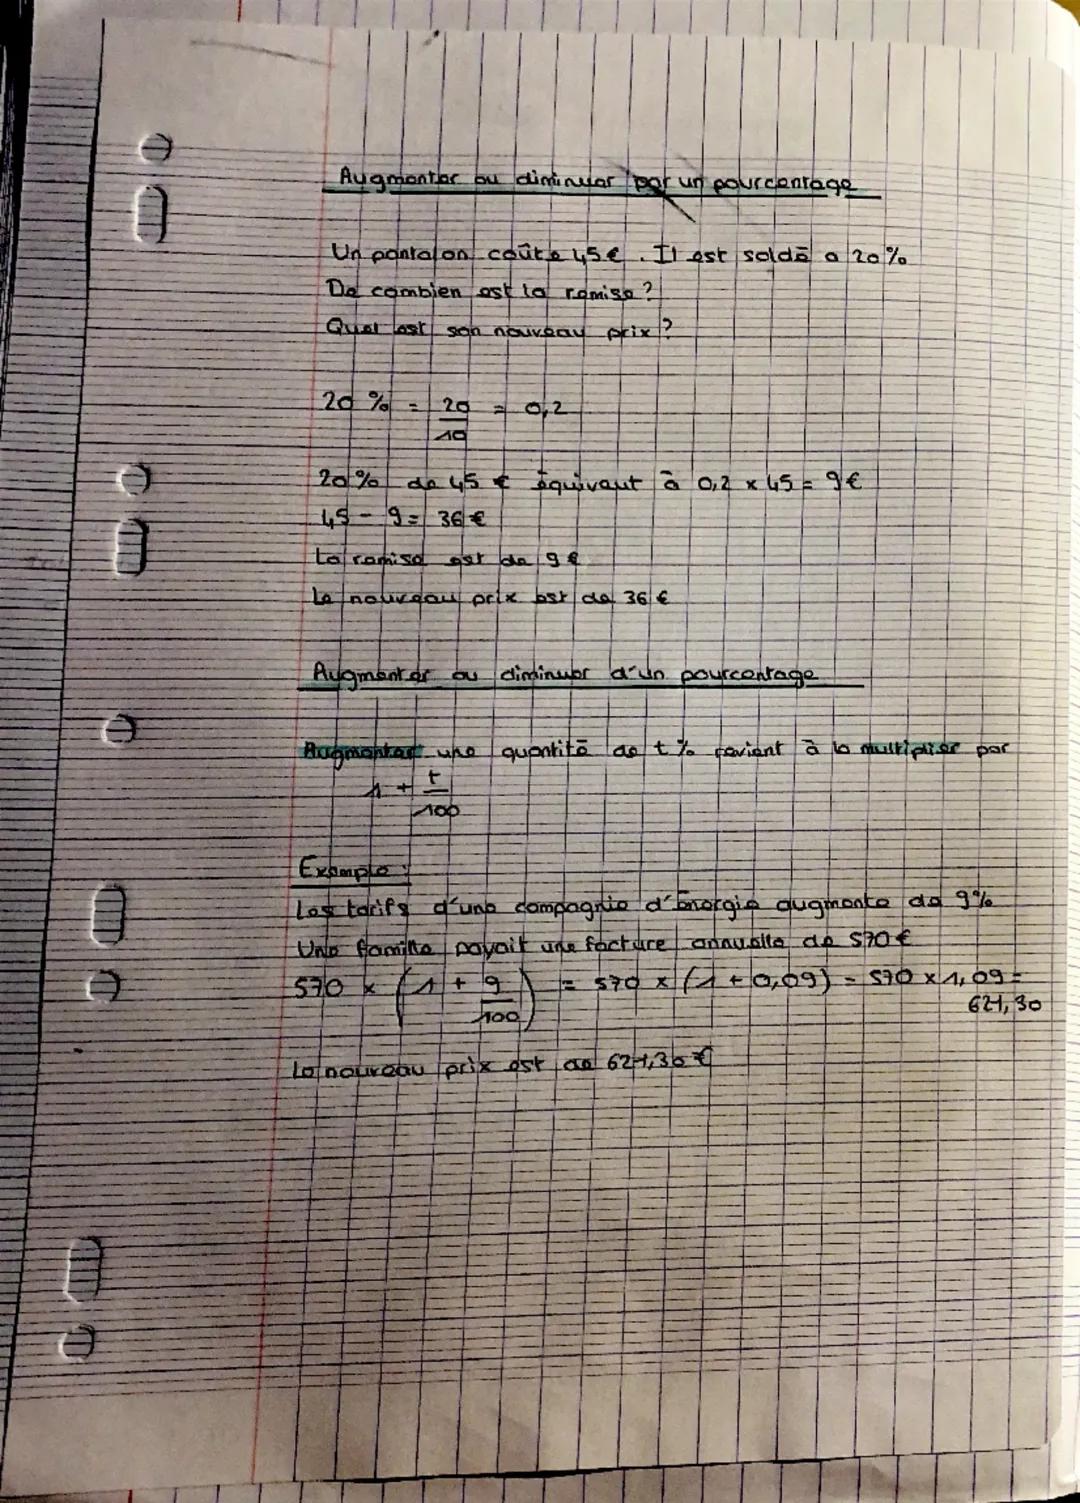 Augmenter ou diminuer par un pourcentage
Un pantalon coûte 45€. Il est soldé a 20%
De combien est la remise ?
Quel est son nouveau prix ?
20 % = 20/10 = 0,2
20% de 45 € équivaut à 0,2 x 45 = 9€
45 - 9 = 36 €
La remise est de 9 €
Le nouveau prix est de 36 €
Augmenter ou diminuer d'un pourcentage
Augmenter une quantité de t % revient à la multiplier par
1 + t/100
Exemple :
Les tarifs d'une compagnie d'énergie augmente de 9%
Une famille payait une facture annuelle de 570€
570 x (1 + 9/100) = 570 x (1 + 0,09) = 570 x 1,09 =
621,30
Le nouveau prix est de 621,30 €